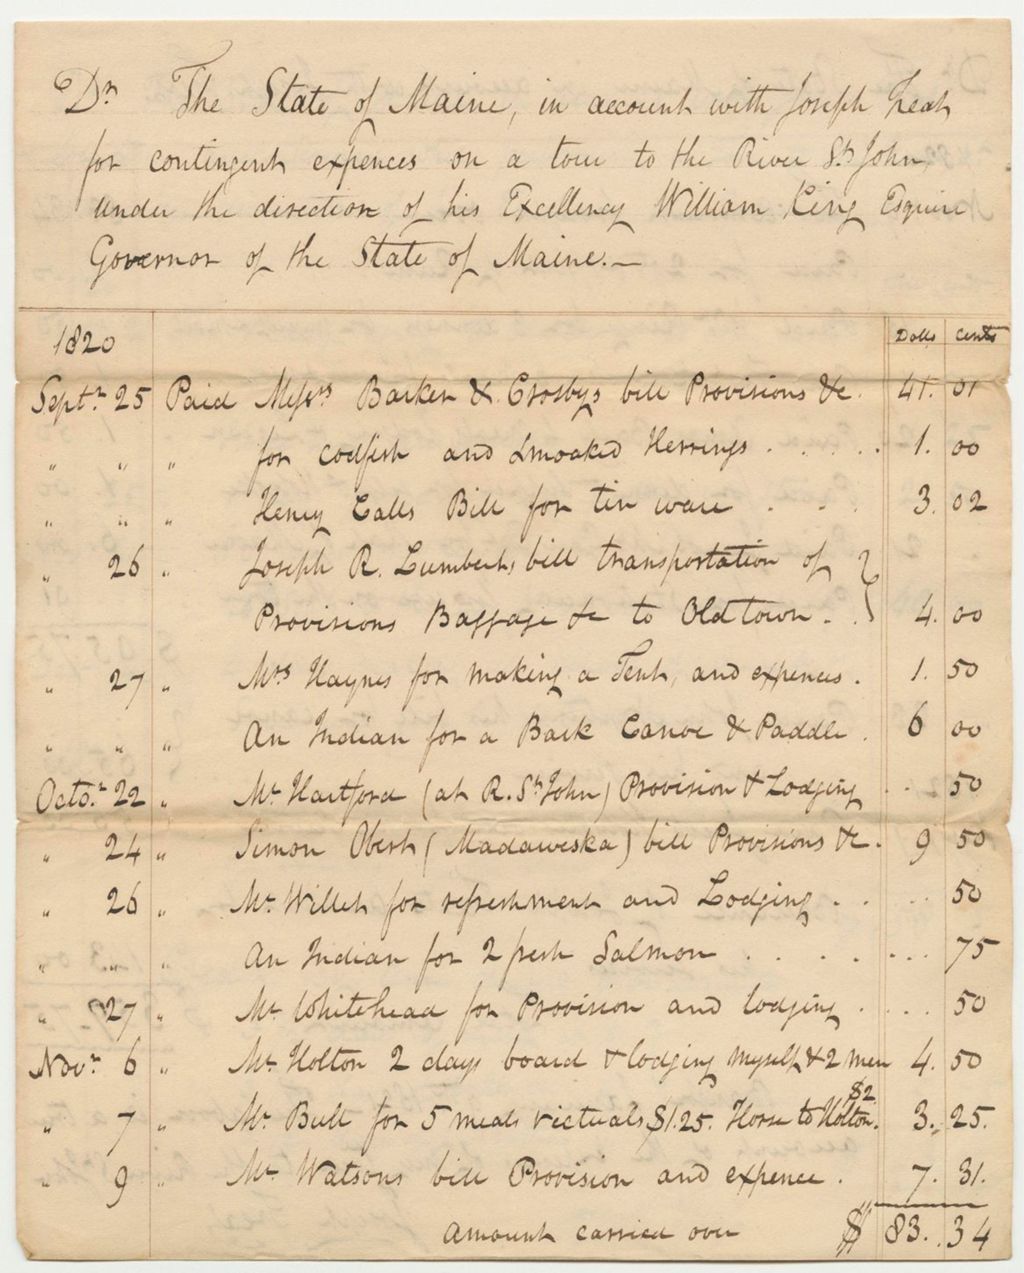 Dr The State of Maine, in account with Joseph Treat
for contingent expences on a tour to the River St John,
under the direction of his Excellency William King Esquire
Governor of the State of Maine.—
1820 Dolls Cents
Septr. 25 Paid Messrs Barker & Crosbys bill Provisions &c. 41. 01
" " " for codfish and Smoaked Herrings . . . . . 1. 00
" " " Henry Calls Bill for tin ware . . . 3. 02
" 26 " Joseph R. Lumberts bill transportation of
Provisions Baggage &c to Oldtown . . 4. 00
" 27 " Mrs Haynes for making a Tent, and expences . 1. 50
" " " An Indian for a Bark Canoe & Paddle . 6 00
Octo.r 22 " Mr Hartford (at R. St John) Provision & Lodging . . 50
" 24 " Simon Obert (Madaweska) bill Provisions &c . 9 50
" 26 " Mr. Willet for refreshment and Lodging . . . . 50
" " " An Indian for 2 fresh Salmon . . . . . . . . 75
" 27 " Mr Whitehead for Provision and lodging . . . . 50
Novr. 6 " Mr Holton 2 days board & lodging myself & 2 men 4. 50
" 7 " Mr. Bull for 5 meals victuals $1.25. Horse to Holton. $2 3. 25.
" 9 " Mr Watsons bill Provision and expence . 7. 31.
Amount carried over $ 83. 34